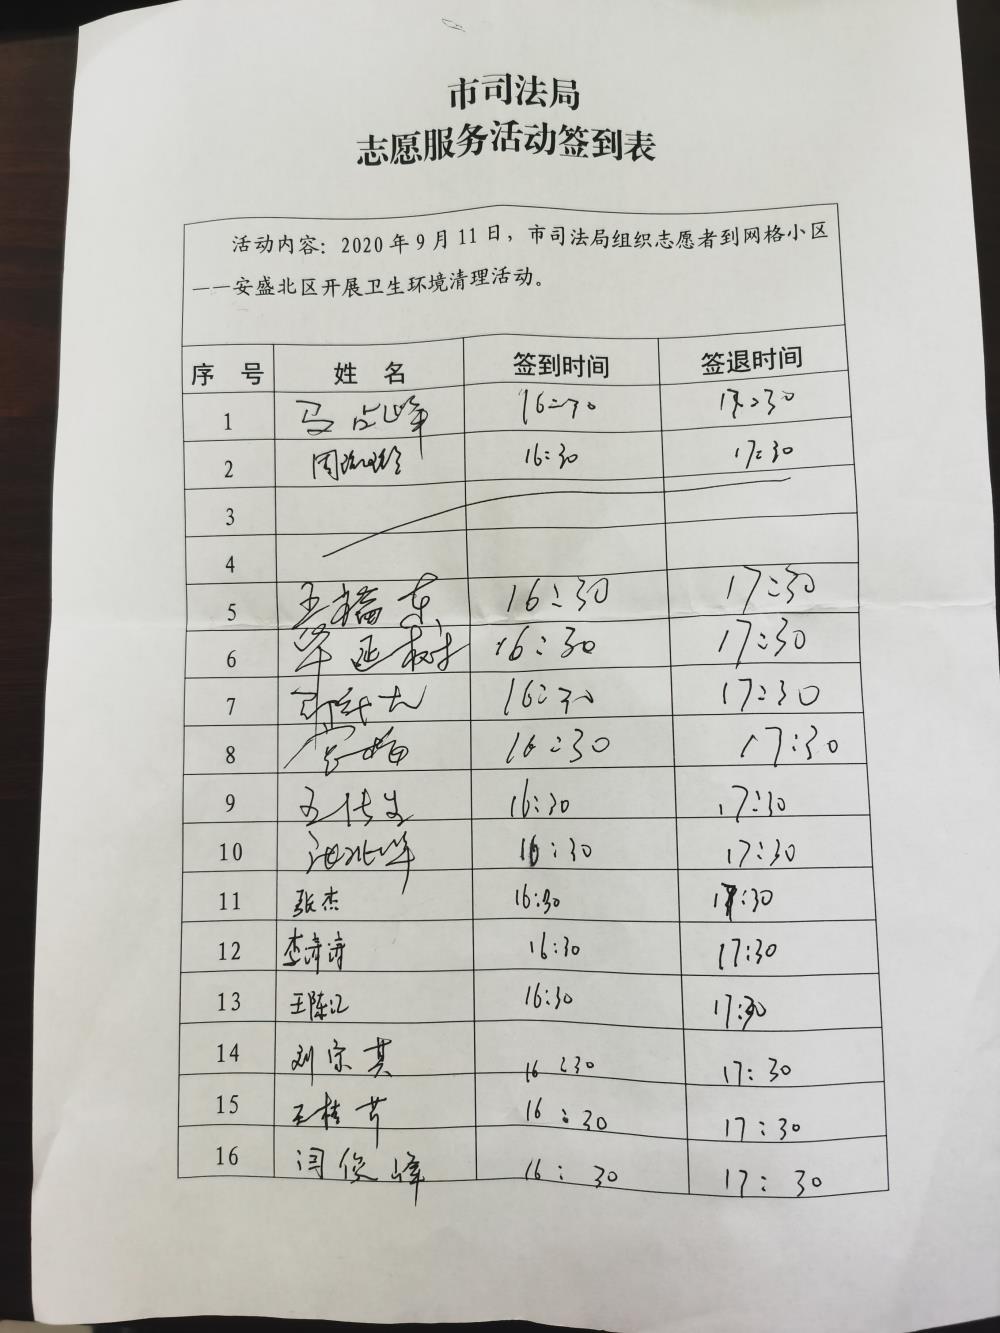 市司法局
志愿服务活动签到表
活动内容：2020年9月11日，市司法局组织志愿者到网格小区
——安盛北区开展卫生环境清理活动。
序 号 姓 名 签到时间 签退时间
1 马 峰 16:30 17:30
2 周 16:30 17:30
3
4
5 王 东 16:30 17:30
6 延树 16:30 17:30
7 16:30 17:30
8 16:30 17:30
9 王传生 16:30 17:30
10 16:30 17:30
11 张杰 16:30 17:30
12 李涛涛 16:30 17:30
13 王陈汇 16:30 17:30
14 刘宗其 16:30 17:30
15 王桂芹 16:30 17:30
16 闫俊峰 16:30 17:30